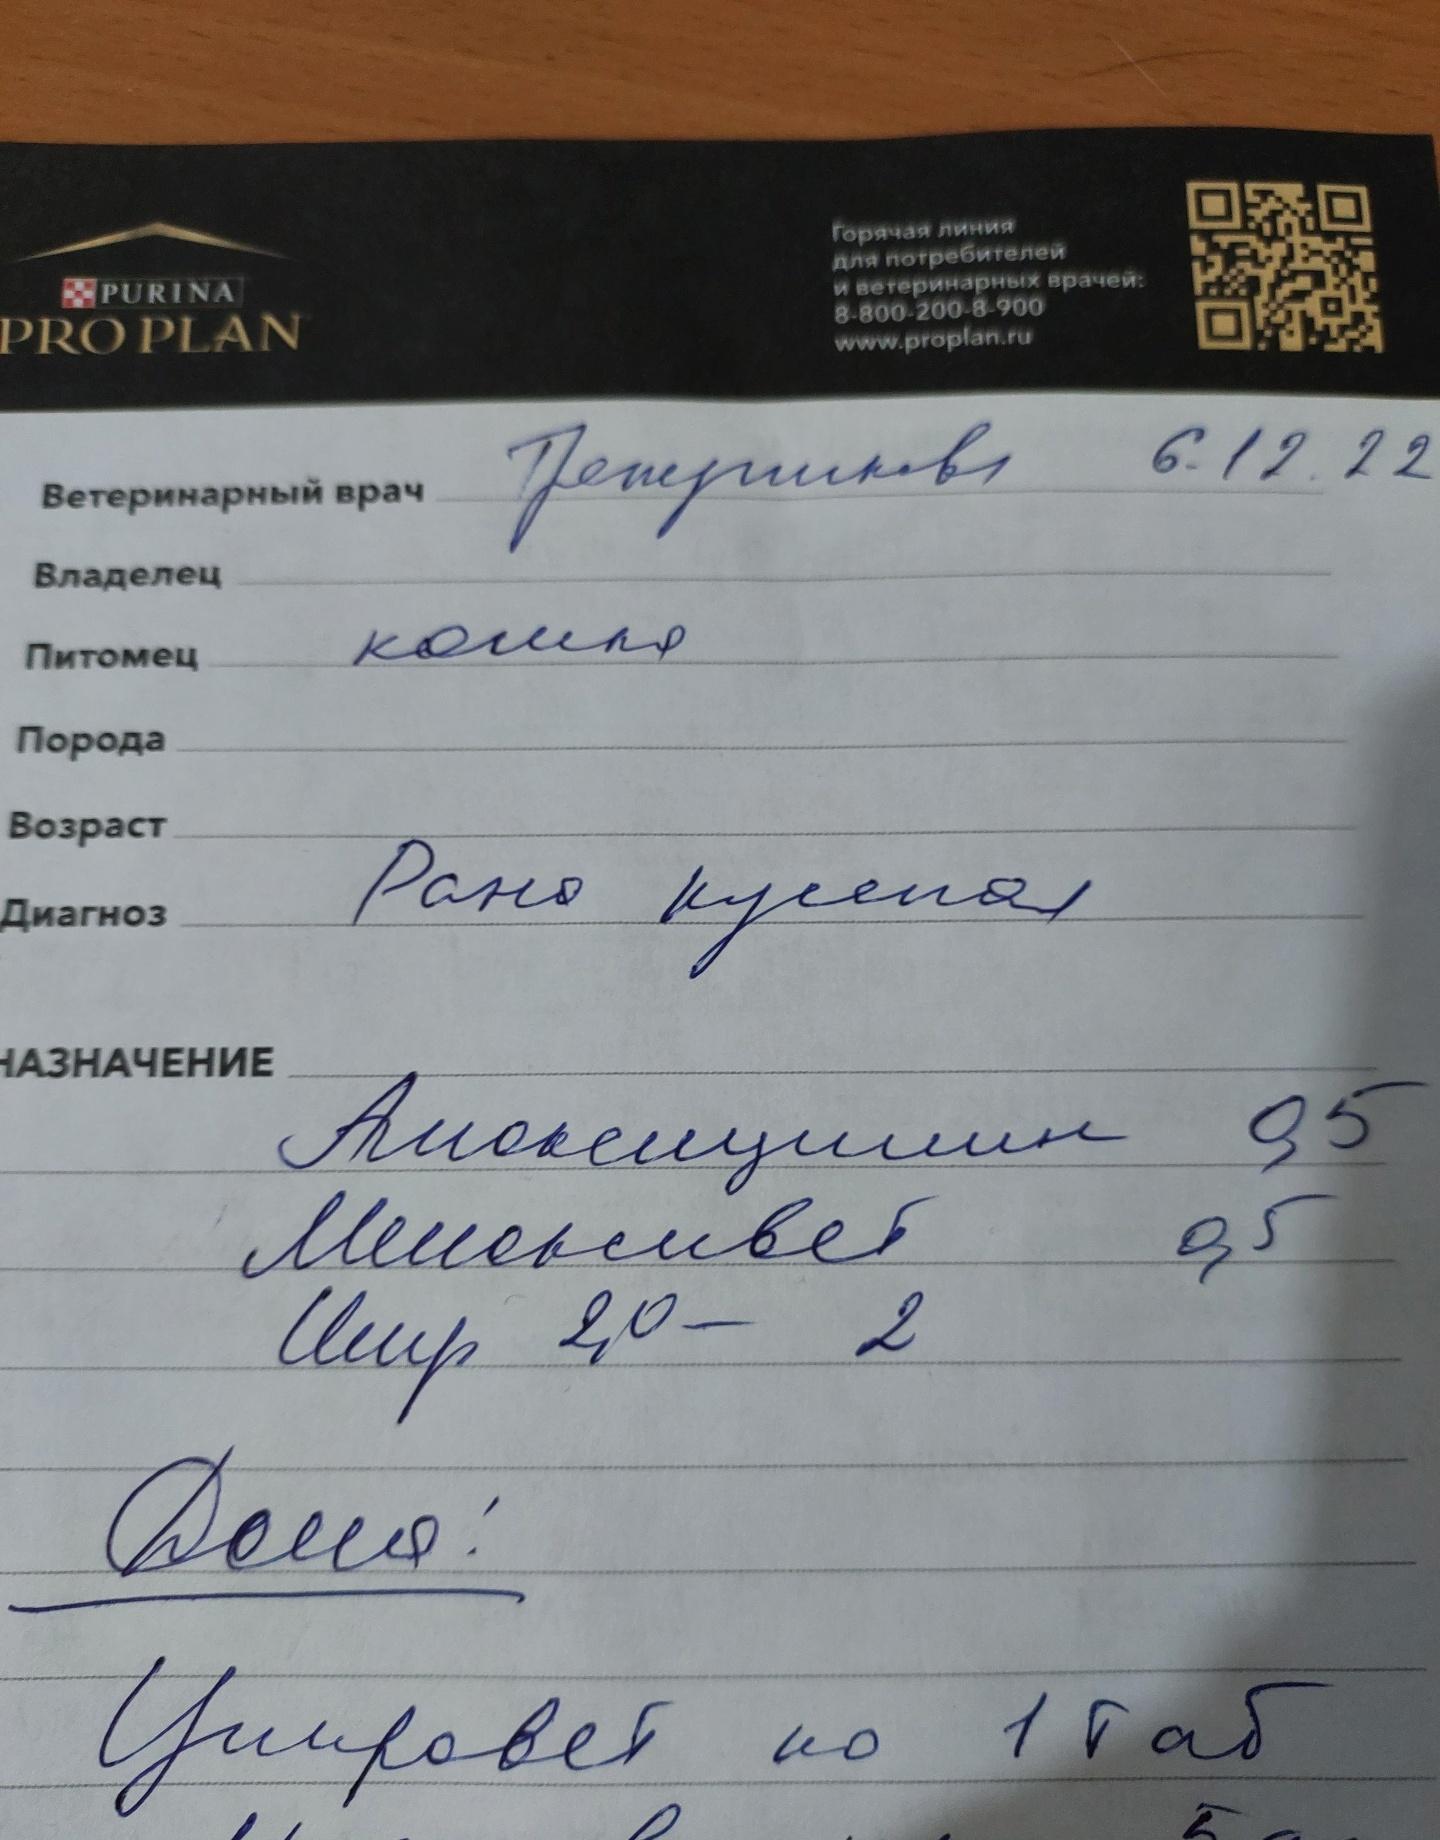 PURINA
PRO PLAN
Горячая линия
для потребителей
и ветеринарных врачей:
8-800-200-8-900
www.proplan.ru
Ветеринарный врач 6.12.22
Владелец
Питомец кошка
Порода
Возраст
Диагноз Рана кусаная
НАЗНАЧЕНИЕ
Амоксициллин 0,5
Мелоксивет 0,5
Шпр 2,0 — 2
Дома:
Ципровет по 1 таб